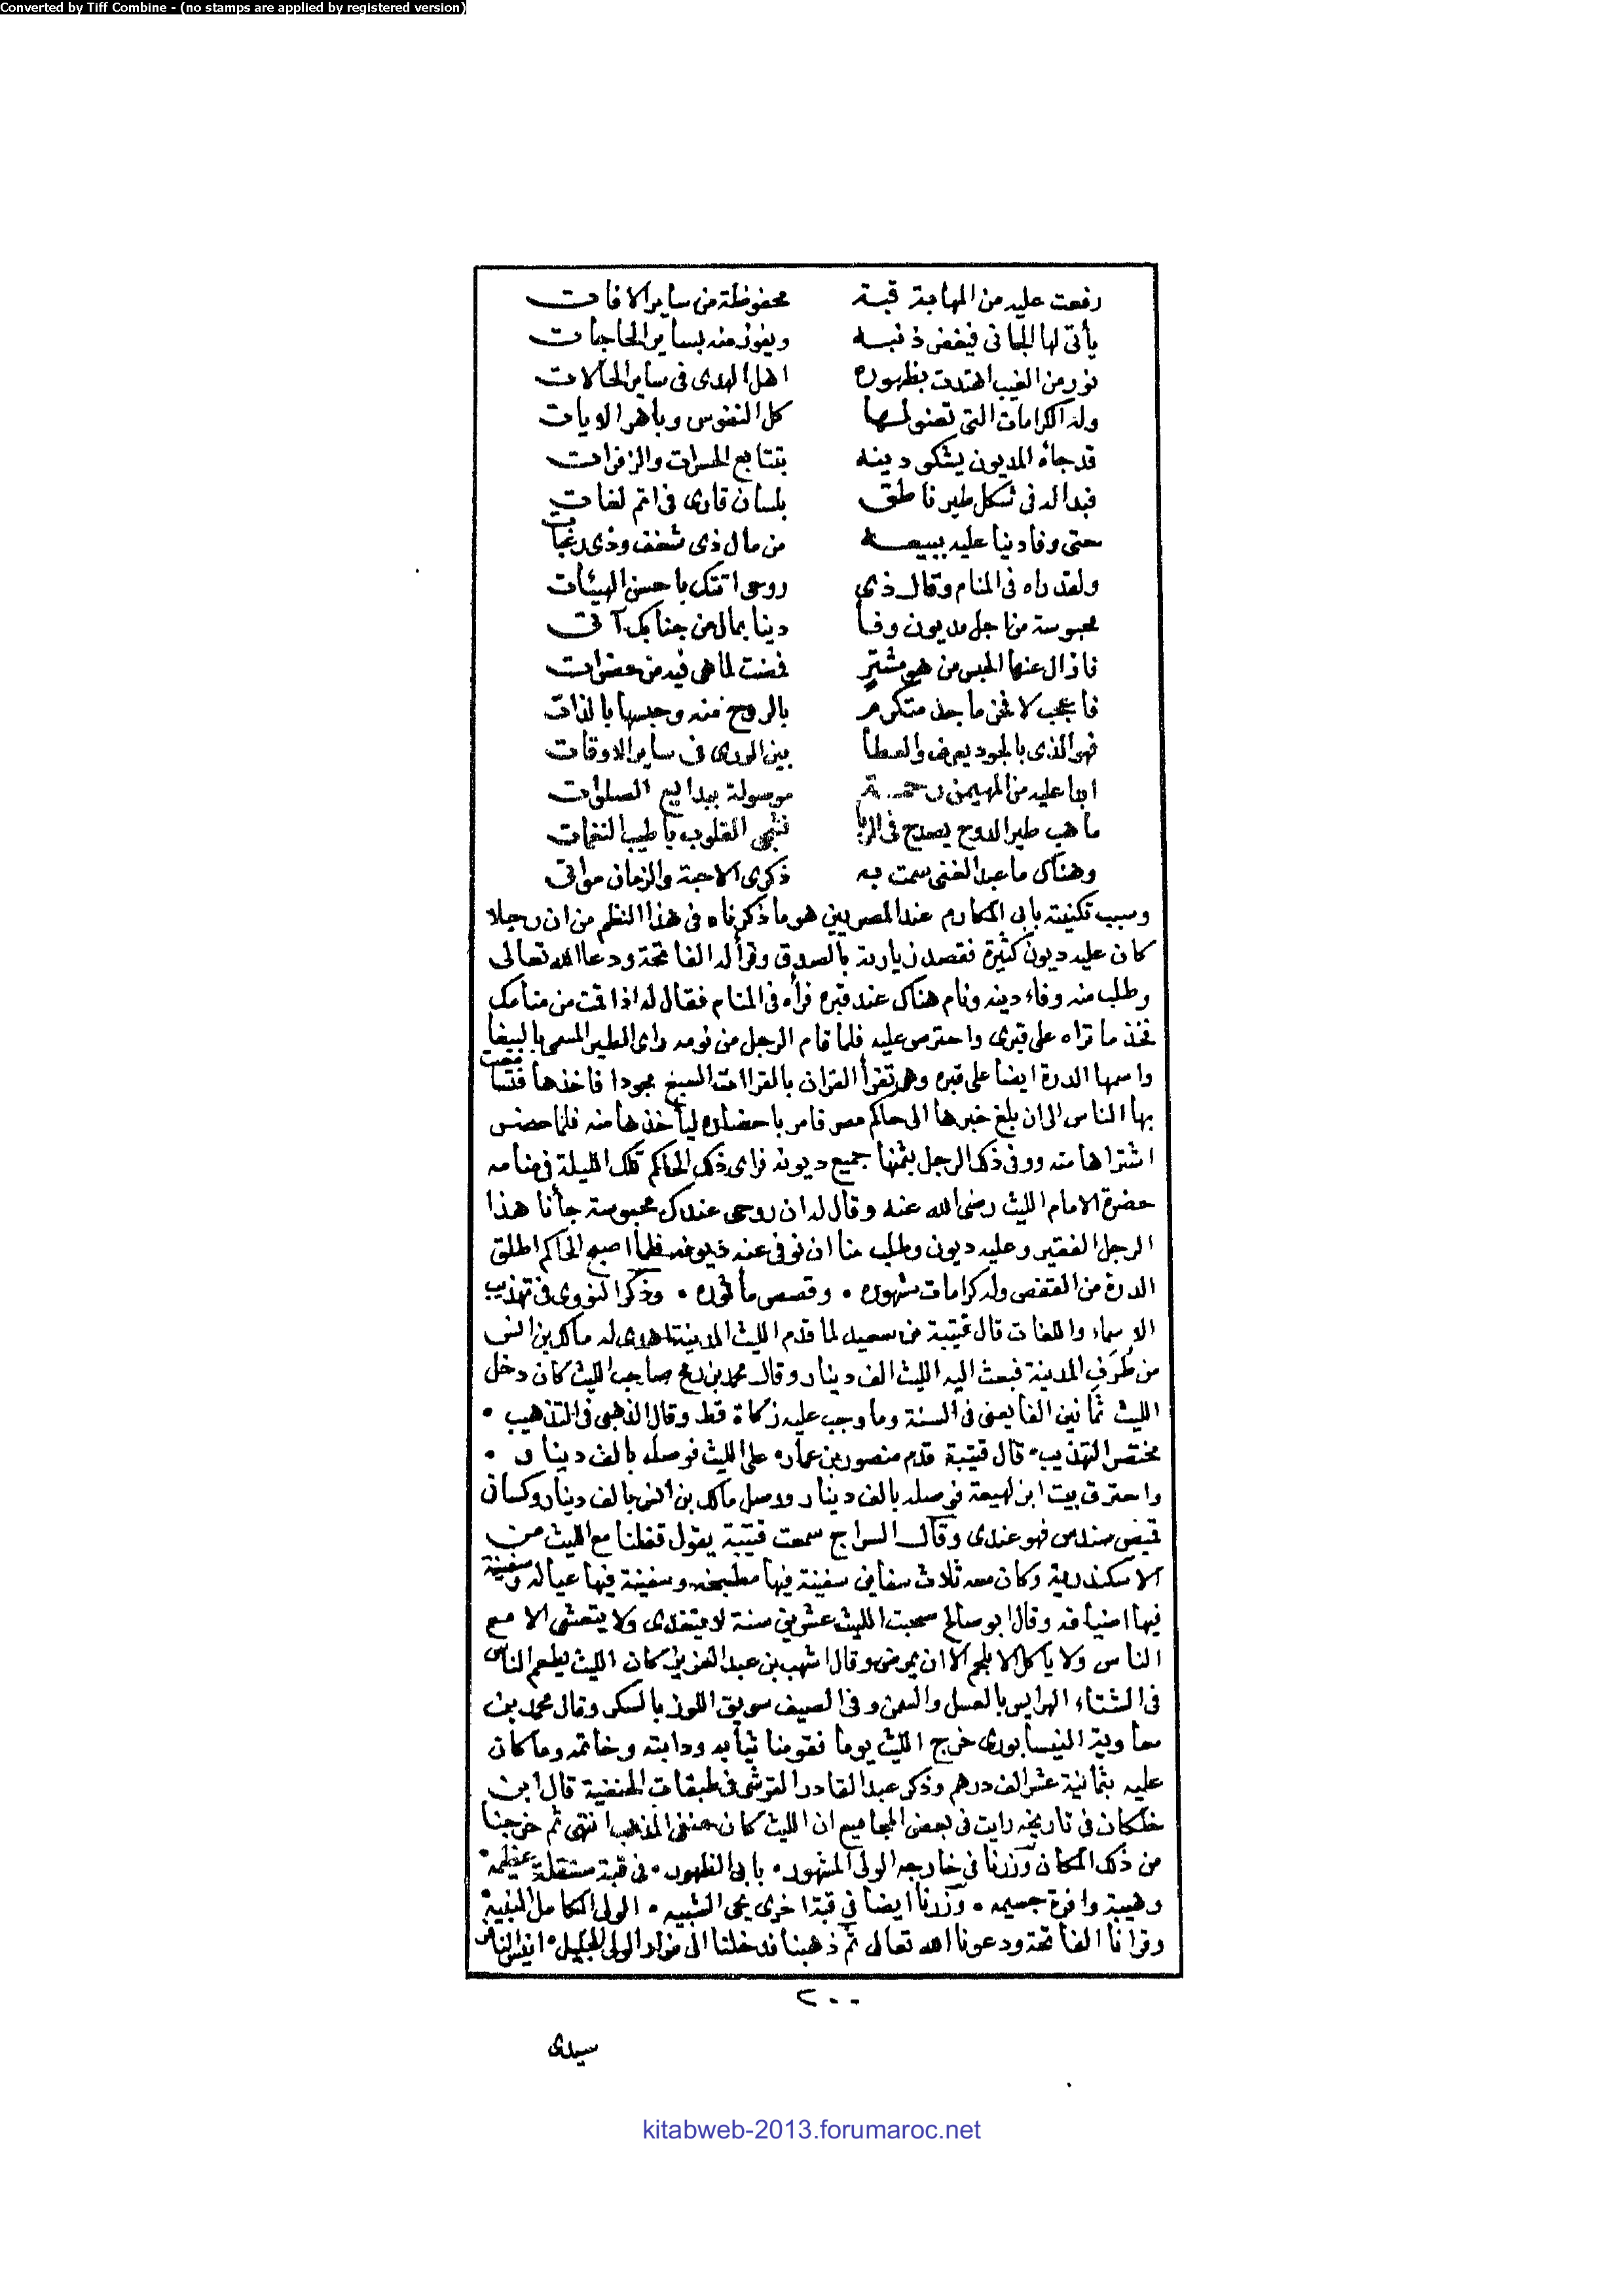 Converted by Tiff Combine - (no stamps are applied by registered version)
رفعت عليه من المهابة قبة محفوظة من ساير الافات
يأتى لها الجانى فيغفر ذنبه ويفوز منه بساير الحاجات
نور من الغيب اهتدت بظهوره اهل الهدى فى ساير الحالات
وله الكرامات التى تعنو لها كل النفوس وباهر الايات
قد جاه المديون يشكو دينه بتتابع الحسرات والزفرات
فبدا له فى شكل طير ناطق بلسان قارى فى اتم لغات
حتى وفا دينا عليه ببيعه من مال ذى شغف وذى رغبات
ولقد راه فى المنام وقال ذى روحى اتتك باحسن الهيئات
محبوسة من اجل مديون وفا دينا بمال من جنابك آتى
فازال عنها الحبس من هو مشترٍ فمضت لما هى فيه من حضرات
فاعجب لا فخر ماجد متكرم بالروح منه وحبسها بالذات
فهو الذى بالجود يعرف والعطا بين الورى فى ساير الاوقات
ابدا عليه من المهيمن رحمة موصولة ببدايع الصلوات
ما هب طير الدوح يصدح فى الربا فشجى القلوب باطيب النغمات
وهناك ما عبد الغنى سمت به ذكرى الاحبة والزمان مواتى
وسبب تكنيته بابى المكارم عند المصريين هو ما ذكرناه فى هذا النظم من ان رجلا
كان عليه ديون كثيرة فقصد زيارته بالصدق وقرأ له الفاتحة ودعا الله تعالى
وطلب منه وفاء دينه ونام هناك عند قبره فرأه فى المنام فقال له اذا قمت من منامك
فخذ ما تراه على قبرى واحترس عليه فلما قام الرجل من نومه راى الطير المسمى بالببغا
واسمها الدرة ايضا على قبره وهى تقرأ القران بالقراات السبع مجودا فاخذها فتسامعت
بها الناس الى ان بلغ خبرها الى حاكم مصر فامر باحضاره ليأخذها منه فلما حضر
اشتراها منه ووفى ذلك الرجل بثمنها جميع ديونه فراى ذلك الحاكم تلك الليلة فى منامه
حضرة الامام الليث رضى الله عنه وقال له ان روحى عندك محبوسة جأنا هذا
الرجل الفقير وعليه ديون وطلب منا ان نوفى عنه ديونه فلما اصبح الحاكم اطلق
الدرة من القفص وله كرامات مشهوره • وقصص مأثوره • وذكر النووى فى تهذيب
الاسماء واللغات قال قتيبة بن سعيد لما قدم الليث المدينة اهدى له مالك بن انس
من طُرَفِ المدينة فبعث اليه الليث الف دينار وقال محمد بن رمح صاحب الليث كان دخل
الليث ثمانين الفا يعنى فى السنة وما وجب عليه زكاة قط وقال الذهبى فى التذهيب •
مختصر التهذيب • قال قتيبة قدم منصور بن عمار على الليث فوصله بالف دينار •
واحترق بيت ابن لهيعة فوصله بالف دينار ووصل مالك بن انس بالف دينار وكسانى
قميص سندس فهو عندى وقال السراج سمعت قتيبة يقول قفلنا مع الليث من
الاسكندرية وكان معه ثلاث سفاين سفينة فيها مطبخه وسفينة فيها عياله وسفينة
فيها اضيافه وقال ابو صالح صحبت الليث عشرين سنة لا يتغدى ولا يتعشى الا مع
الناس ولا ياكل الا بلحم الا ان يمرض وقال اشهب بن عبد العزيز كان الليث يطعم الناس
فى الشتاء الهرايس بالعسل والسمن وفى الصيف سويق اللوز بالسكر وقال محمد بن
معاوية النيسابورى خرج الليث يوما فقومنا ثيابه ودابته وخاتمه وما كان
عليه بثمانية عشر الف درهم وذكر عبد القادر القرشى فى طبقات الحنفية قال ابن
خلكان فى تاريخه رايت فى بعض المجاميع ان الليث كان حنفى المذهب انتهى ثم خرجنا
من ذلك المكان وزرنا فى خارجه الولى المشهور • بابى الظهور • فى قبة مستقلة عظيمه •
وهيبة وافرة جسيمه • وزرنا ايضا فى قبة اخرى يحى الشبيه • الولى الكامل النبيه
وقرانا الفاتحة ودعونا الله تعالى ثم ذهبنا فدخلنا الى مزار الولى الجليل • انيس الناس
٢٠٠
سيدى
kitabweb-2013.forumaroc.net